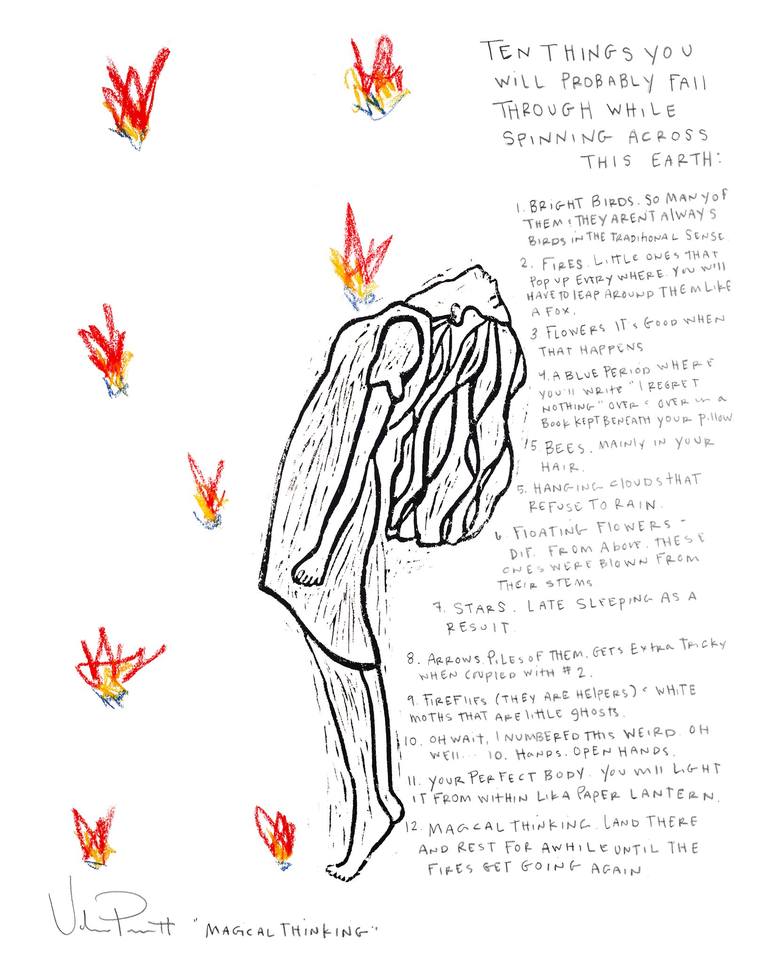 TEN THINGS YOU
WILL PROBABLY FALL
THROUGH WHILE
SPINNING ACROSS
THIS EARTH:
1. BRIGHT BIRDS. SO MANY OF
THEM & THEY ARENT ALWAYS
BIRDS IN THE TRADITIONAL SENSE.
2. FIRES. LITTLE ONES THAT
POP UP EVERYWHERE. YOU WILL
HAVE TO LEAP AROUND THEM LIKE
A FOX.
3 FLOWERS IT & GOOD WHEN
THAT HAPPENS
4. A BLUE PERIOD WHERE
YOU'LL WRITE "I REGRET
NOTHING" OVER & OVER IN A
BOOK KEPT BENEATH YOUR PILLOW
5 BEES. MAINLY IN YOUR
HAIR.
5. HANGING CLOUDS THAT
REFUSE TO RAIN.
6. FLOATING FLOWERS -
DIF. FROM ABOVE. THESE
ONES WERE BLOWN FROM
THEIR STEMS
7. STARS. LATE SLEEPING AS A
RESULT.
8. ARROWS. PILES OF THEM. GETS EXTRA TRICKY
WHEN COUPLED WITH #2.
9. FIREFLIES (THEY ARE HELPERS) & WHITE
MOTHS THAT ARE LITTLE GHOSTS.
10. OH WAIT, I NUMBERED THIS WEIRD. OH
WELL... 10. HANDS. OPEN HANDS.
11. YOUR PERFECT BODY. YOU WILL LIGHT
IT FROM WITHIN LIKA PAPER LANTERN.
12. MAGCAL THINKING. LAND THERE
AND REST FOR AWHILE UNTIL THE
FIRES GET GOING AGAIN
"MAGCAL THINKING"